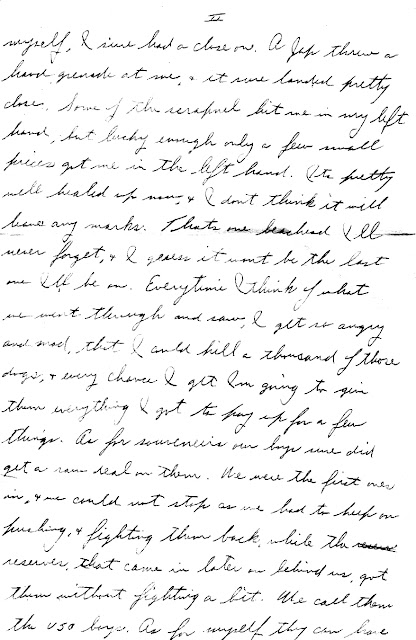 II
myself, I sure had a close on. A Jap threw a
hand grenade at me, & it sure landed pretty
close. Some of the scrapnel hit me in my left
hand, but lucky enough only a few small
pieces got me in the left hand. Its pretty
well healed up now, & I don't think it will
leave any marks. Thats one beachead I'll
never forget, & I guess it wont be the last
one I'll be on. Everytime I think of what
we went through and saw, I get so angry
and mad, that I could kill a thousand of those
dogs, & every chance I get I'm going to give
them everything I got to pay up for a few
things. As for souveneirs our boys sure did
get a raw deal on them. We were the first ones
in, & we could not stop as we had to keep on
pushing, & fighting them back, while the
reserves, that came in later on behind us, got
them without fighting a bit. We call them
the USO boys. As for myself they can have